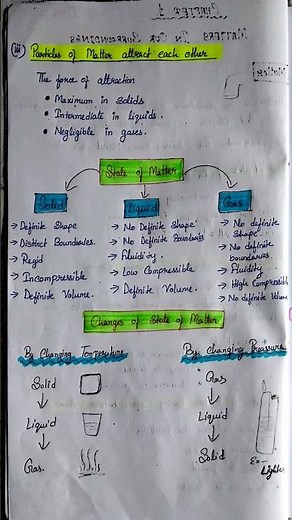 (iii) Particles of Matter attract each other
The force of attraction
• Maximum in solids
• Intermediate in liquids.
• Negligible in gases.
State of Matter
Solid
→ Definite Shape
→ Distinct Boundaries.
→ Regid
→ Incompressible
→ Definite Volume.
Liquid
→ No Definite Shape
→ No Definite Boundaries
→ Fluidity.
→ Low Compressible
→ Definite Volume.
Gas
→ No definite
Shape
→ No definite
boundaries.
→ Fluidity
→ High Compressible
→ No definite Volume
Changes of State of Matter
By Changing Temperature
Solid
↓
Liquid
↓
Gas.
By Changing Pressure
Gas
↓
Liquid
↓
Solid
Ex-
Lighter